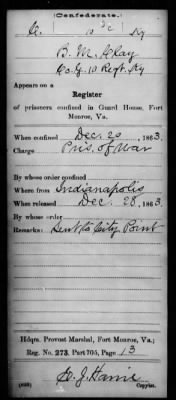 (Confederate.)
C. 10 Ky
B. M. Clay
Co. G. 10 Regt. Ky
Appears on a
Register
of prisoners confined in Guard House, Fort
Monroe, Va.
When confined Dec. 20, 1863.
Charge Pris. of War
By whose order confined
Where from Indianapolis
When released Dec. 28, 1863.
By whose order
Remarks: Sent to City Point
Hdqrs. Provost Marshal, Fort Monroe, Va.;
Reg. No. 273, Part 705, Page 13
Copyist.